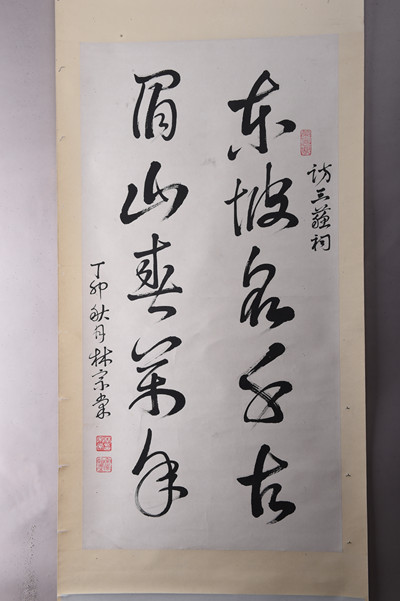 访三苏祠
东坡名千古
眉山春万年
丁卯秋月林宗棠